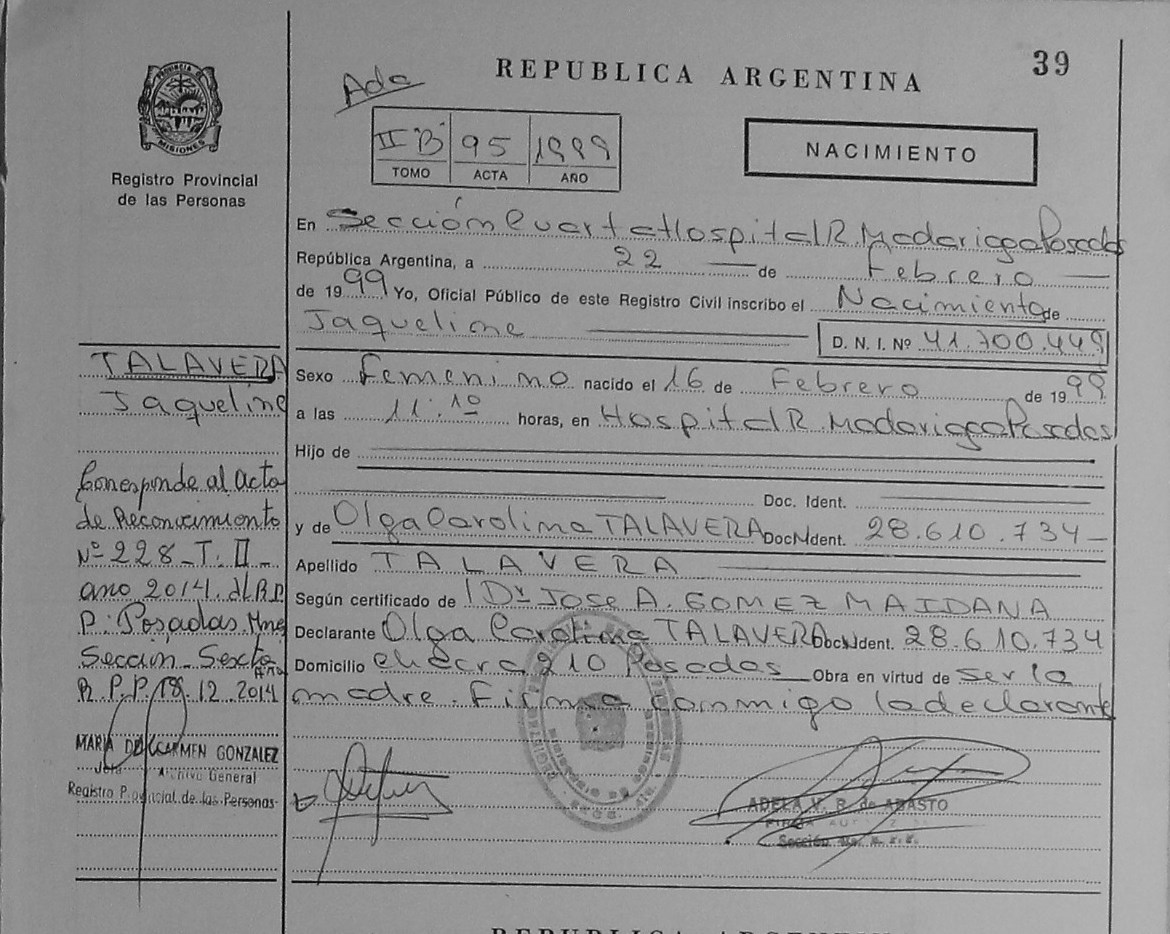 39
REPUBLICA ARGENTINA
Ada
II "B" 95 1999
TOMO ACTA AÑO
NACIMIENTO
PROVINCIA DE
MISIONES
Registro Provincial
de las Personas
En Sección Cuarta Hospital R. Madariaga Posadas
República Argentina, a 22 de Febrero
de 1999 Yo, Oficial Público de este Registro Civil inscribo el Nacimiento de
Jaqueline D. N. I. Nº 41.700.449
Sexo Femenino nacido el 16 de Febrero de 1999
a las 11.10 horas, en Hospital R. Madariaga Posadas
Hijo de
Doc. Ident.
y de Olga Carolina TALAVERA Doc. Ident. 28.610.734
Apellido TALAVERA
Según certificado de Dr JOSE A. GOMEZ MAIDANA
Declarante Olga Carolina TALAVERA Doc. Ident. 28.610.734
Domicilio chacra 210 Posadas Obra en virtud de ser la
madre. Firma conmigo la declarante
ADELA V. R. de ABASTO
TALAVERA
Jaqueline
Corresponde al Acta
de Reconocimiento
Nº 228-T. II-
año 2014. d/R.P.
P. Posadas. Mnes
Sección Sexta
R. P. P. 18.12.2014
MARIA DEL CARMEN GONZALEZ
Jefa Archivo General
Registro Provincial de las Personas
REPUBLICA ARGENTINA